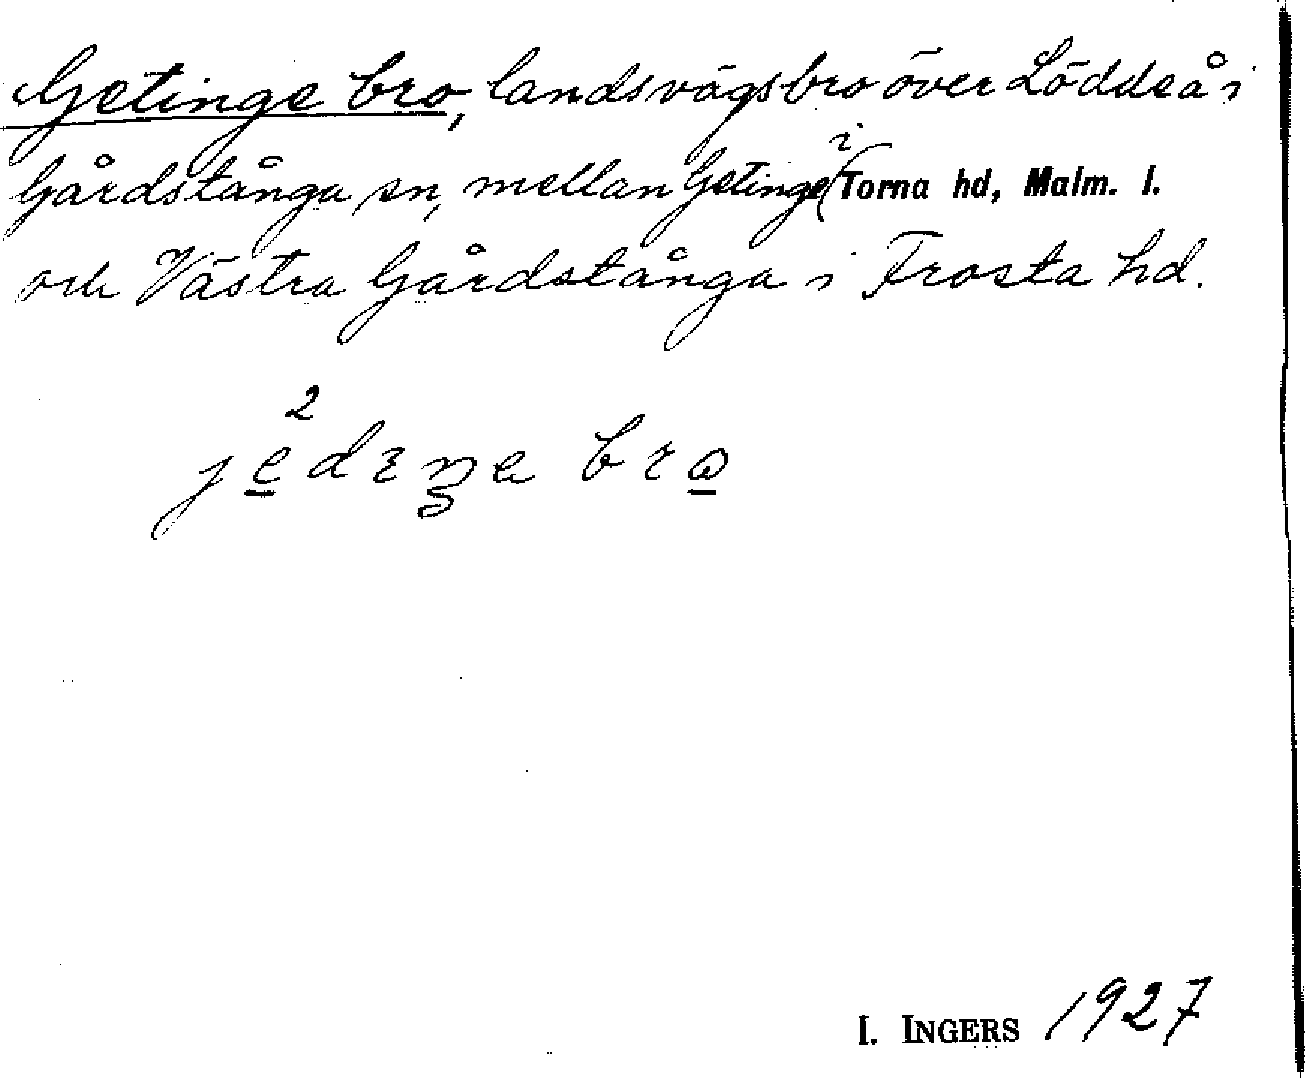 Getinge bro, landsvägsbro över Löddeå i
Gårdstånga sn, mellan Getinge i Torna hd, Malm. l.
och Västra Gårdstånga i Frosta hd.
2
jedɪŋe bro
I. INGERS 1927